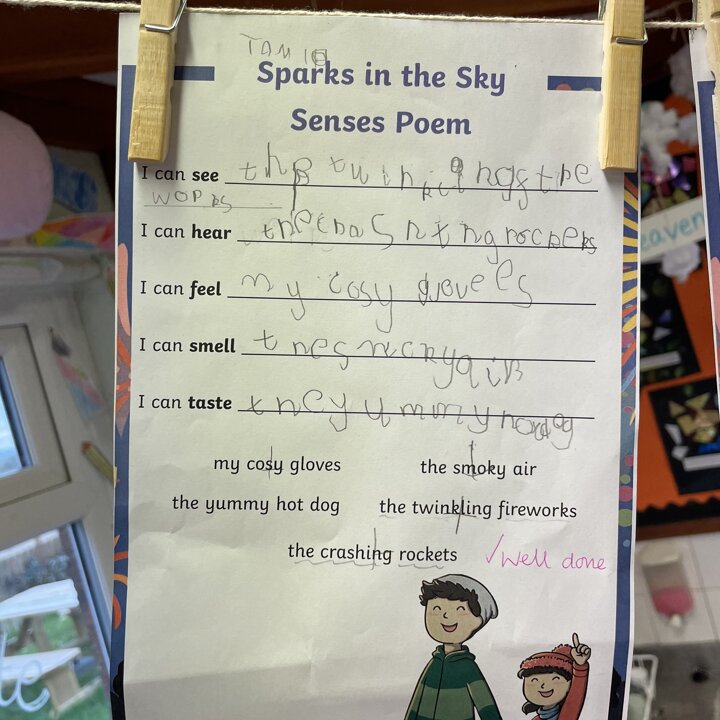 Sparks in the Sky
Senses Poem
I can see the twinklingstre
works
I can hear thecrashingrockets
I can feel my cosy gloves
I can smell thesmokyair
I can taste theyummyhotdog
my cosy gloves the smoky air
the yummy hot dog the twinkling fireworks
the crashing rockets ✓Well done
eaven